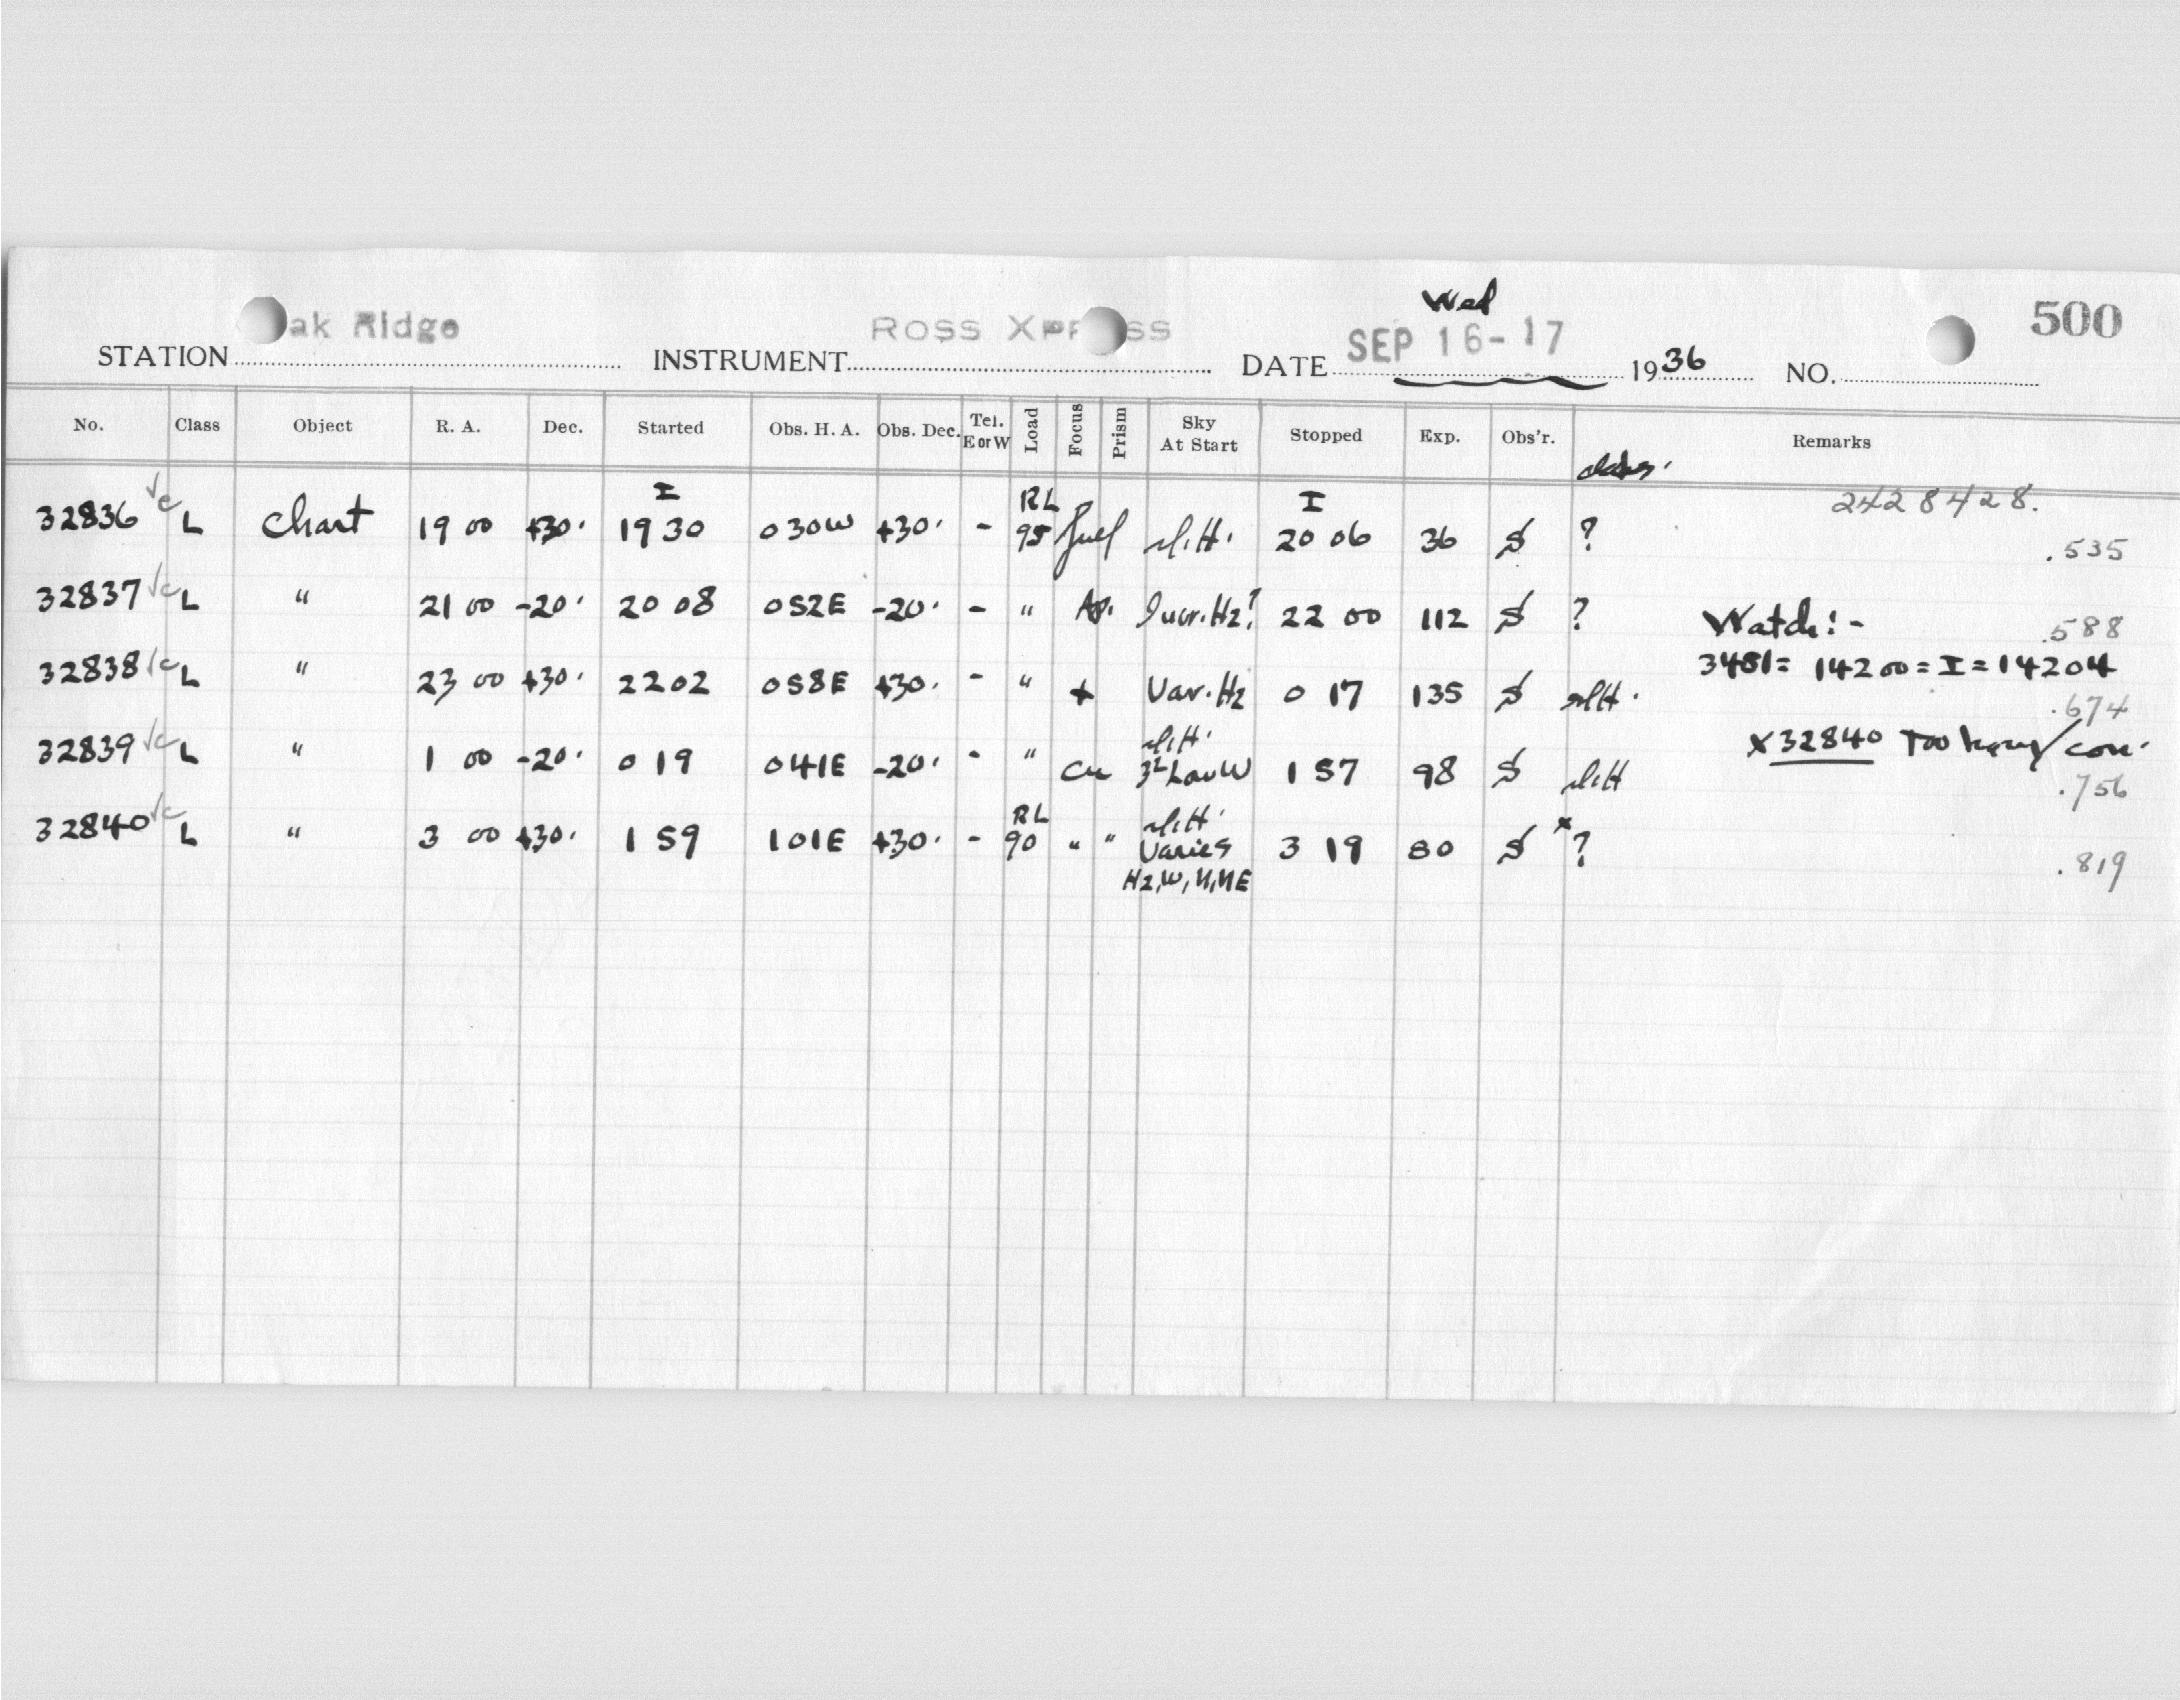 Wed
STATION ak Ridge INSTRUMENT Ross Xpr ss DATE SEP 16-17 1936 NO. 500
No. Class Object R. A. Dec. Started Obs. H. A. Obs. Dec. Tel. E or W Load Focus Prism Sky At Start Stopped Exp. Obs'r. Remarks
I RL I 2428428.
32836 √c L Chart 19 00 +30. 19 30 030W +30. - 95 20 06 36 S ? .535
32837 √c L " 21 00 -20. 20 08 052E -20. - " Hz? 22 00 112 S ? Watch:- .588
32838 √c L " 23 00 +30. 22 02 058E +30. - " + Var. Hz 0 17 135 S slH. 3481= 14200 = I = 14204
.674
32839 √c L " 1 00 -20. 0 19 041E -20. - " W 1 57 98 S slH x 32840 Too
.756
RL
32840 √c L " 3 00 +30. 1 59 101E +30. - 90 " " Varies 3 19 80 S x? .819
Hz, W, N, NE